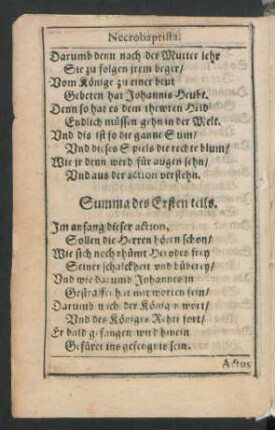 Necrobaptista.
Darumb denn nach der Mutter lehr
Sie zu folgen jrem beger/
Vom Könige zu einer beut
Gebeten hat Johannis Heubt.
Denn so hat es dem thewren Held
Endlich müssen gehn in der Welt.
Vnd dis ist so die gantze Sum/
Vnd dieses Spiels die rechte blum/
Wie jr denn werd für augen sehn/
Vnd aus der action verstehn.
Summa des Ersten teils.
Im anfang dieser action,
Sollen die Herren hören schon/
Wie sich noch rhümt Herodes frey
Seiner schalckheit vnd büberey/
Vnd wie darumb Johannes jn
Gestraffet hat mit worten fein/
Darumb nach der Königin wort/
Vnd des Königes Rehte fort/
Er bald gefangen wird hinein
Gefüret ins gefengnis sein.
Actus